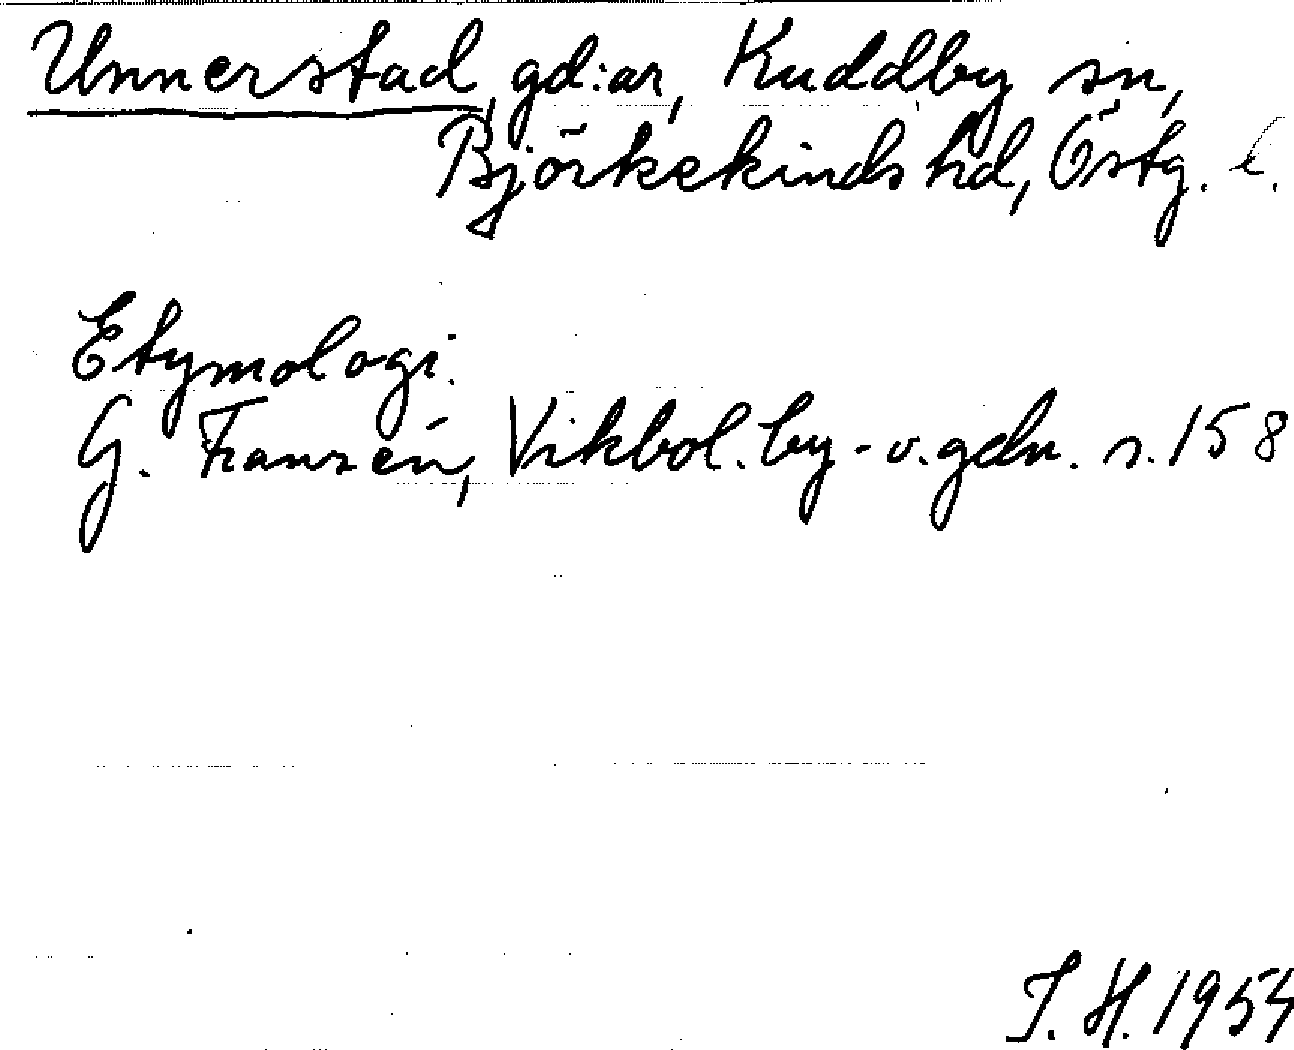 Unnerstad, gd:ar, Kuddby sn,
Björkekinds hd, Östg. l.
Etymologi.
G. Franzén, Vikbol. by- o. gdn. s. 158
J. H. 1954